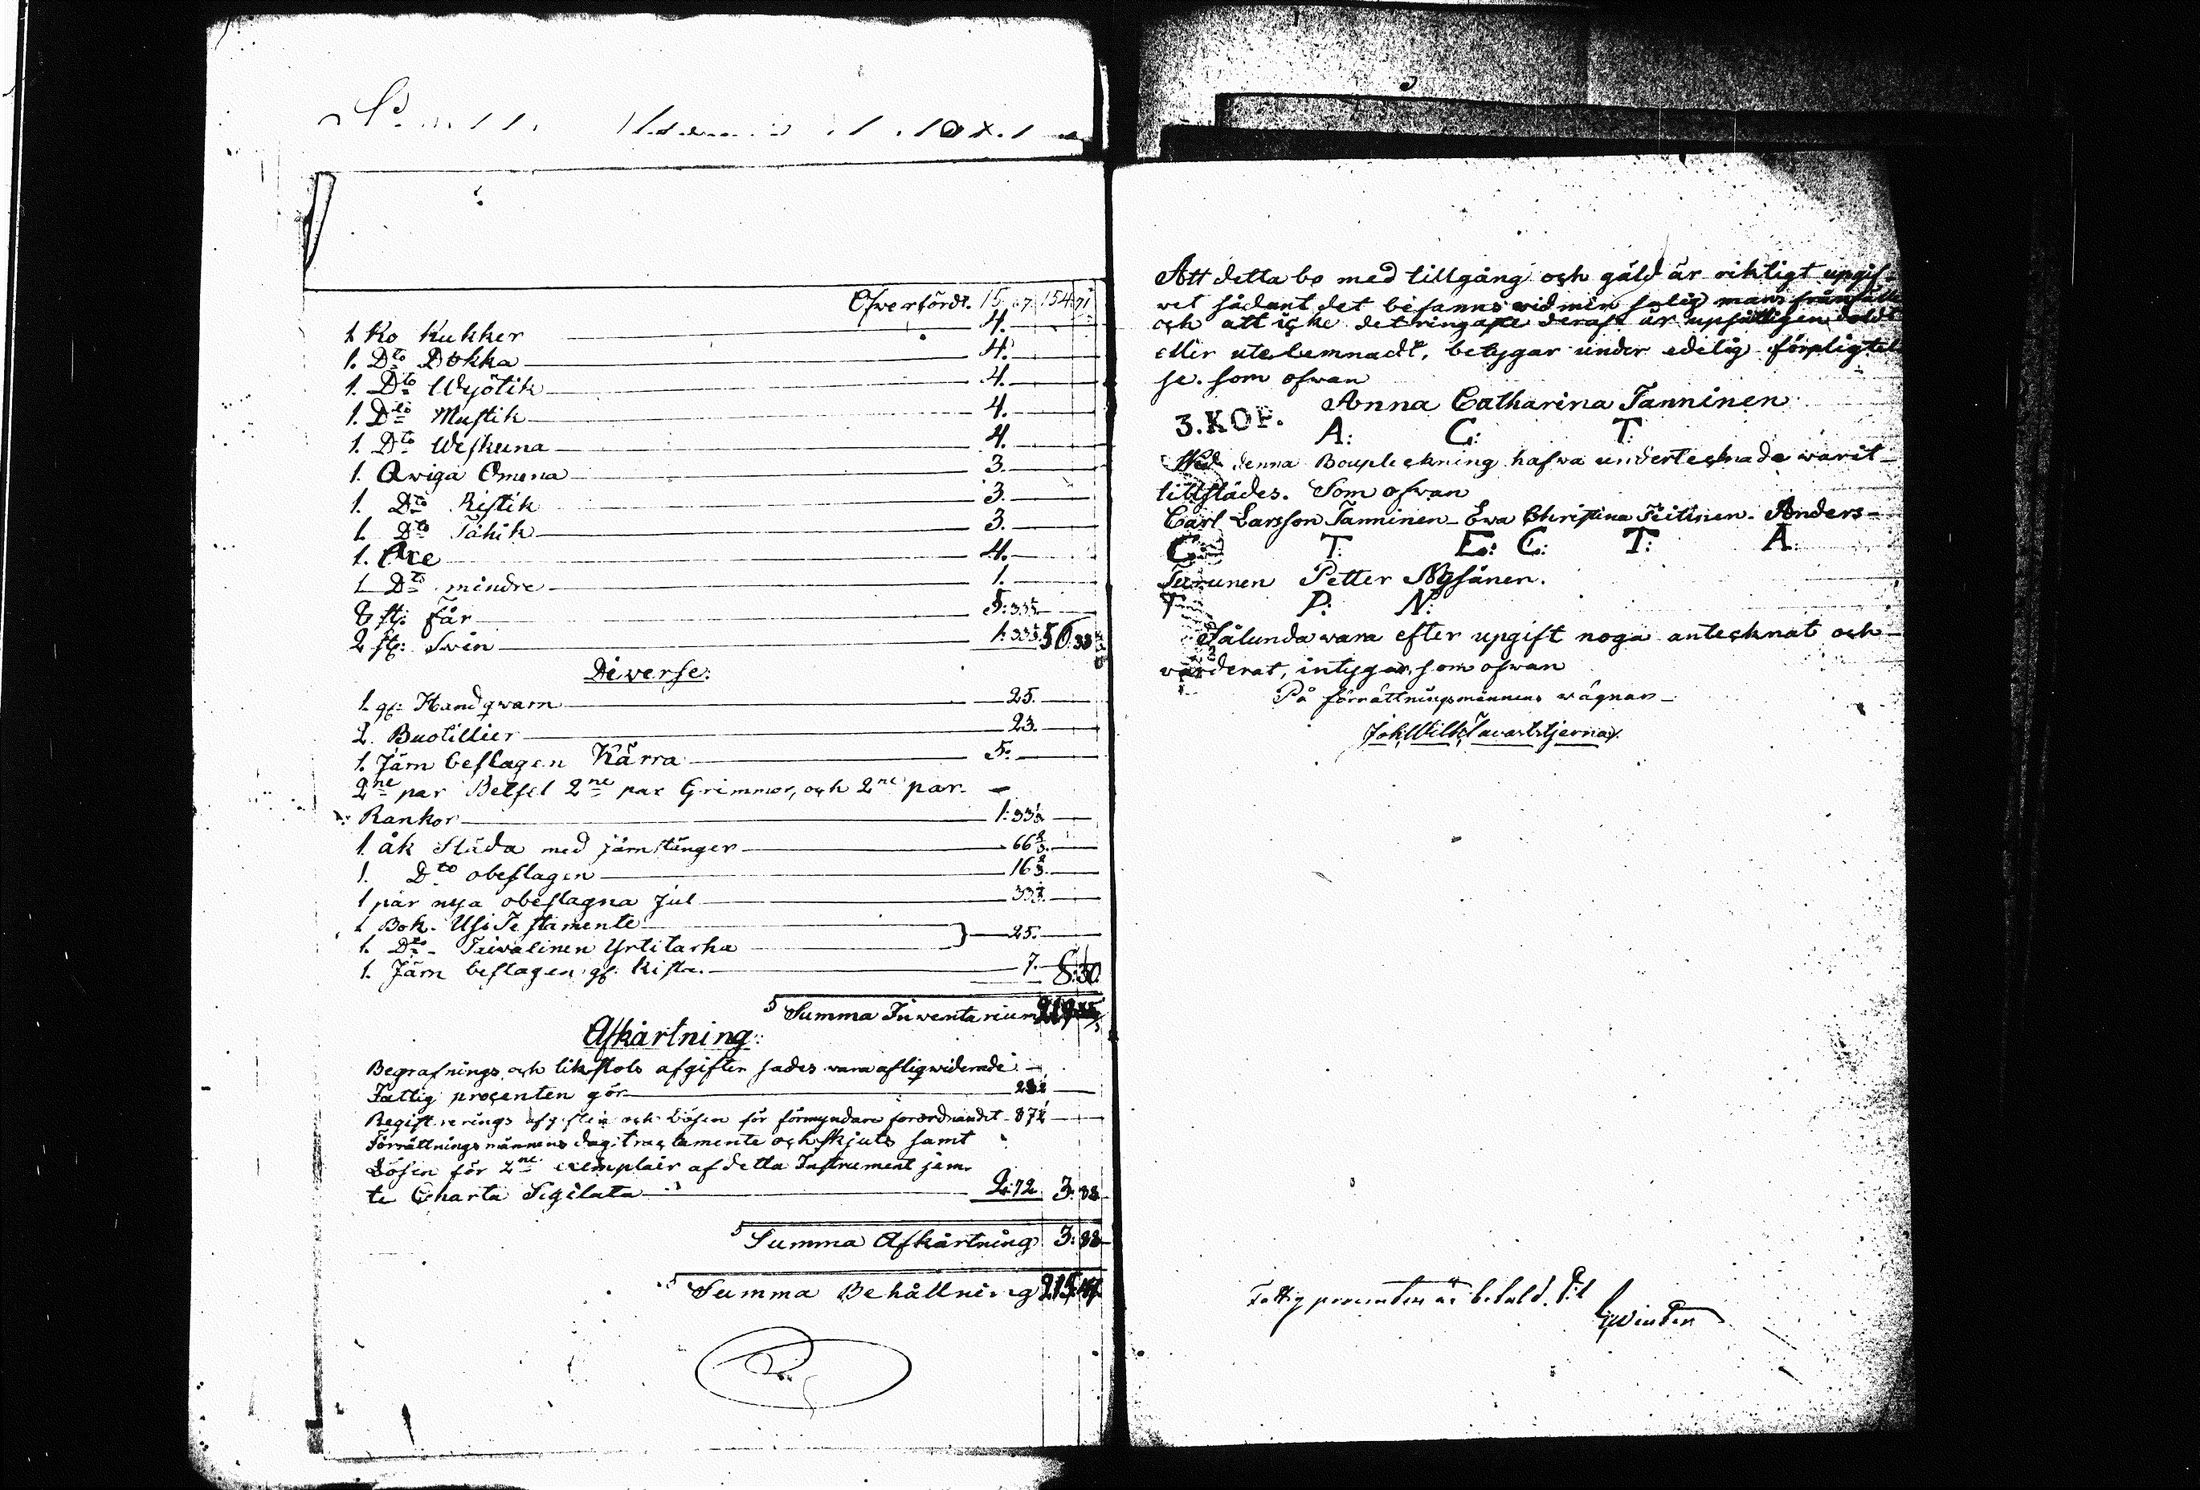 Ofverfördt. 15. 67. 154 71
1 Ko Kukker 4.
1. Dto Dokka 4.
1. Dto Wyötik 4.
1. Dto Mustik 4.
1. Dto Weskuna 4.
1. Qwiga Omena 3.
1. Dto Ristik 3.
1. Dto Tähik 3.
1. Oxe 4.
1 Dto mindre 1.
8 st: Får 5:33⅓
2 st: Swin 1:33⅓ 50.33
Diverse:
1. gl: Handqwarn 25.
2. Buotillier 23.
1. Järn beslagen Kärra 5.
2ne par Betsel 2ne par Grimmor, och 2ne par
Rankor 1:33⅓
1. åk Släda med järnstänger 66⅔.
1. Dto obeslagen 16⅔.
1 par nya obeslagna Jul 33⅓.
1 Bok. Usi Testamente
1. Dto Taivalinen Yrtitarha } 25.
1. Järn beslagen gl. Kista. 7. 8:30
Summa Inventarium
Afkårtning:
Begrafnings och likstols afgifter sades vara afliqwiderade
Fattig procenten gör
Registrerings afgiften och Lösen för förmyndare förordnandet 87½
Förrättningsmännens dagtractamente och skjuts samt
Lösen för 2ne exemplair af detta Instrument jem-
te Charta Sigilata 2:72 3:88
Summa Afkårtning 3:88
Summa Behållning
Att detta bo med tillgång och gäld är riktigt upgif-
vet sådant det befanns vid min salig mans frånfälle
och att icke det ringaste deraf är upsåtligen doldt
eller utelemnadt, betygar under edelig förpligtel
se. som ofvan
Anna Catharina Tanninen
3. KOP.
A: C: T:
Wid denna Bouptekning hafwa undertecknade warit
tillstädes. Som ofvan
Carl Larsson Tanninen Ewa Christina Teitinen. Anders
C T: E: C: T: A:
Turunen Petter Nysänen.
T P: N:
Sålunda wara efter upgift noga antecknat och
värderat, intygar, som ofvan
På förrättningsmännens wägnar
Joh. Wilh. Tavaststjerna
Fattigprocenten är betald.